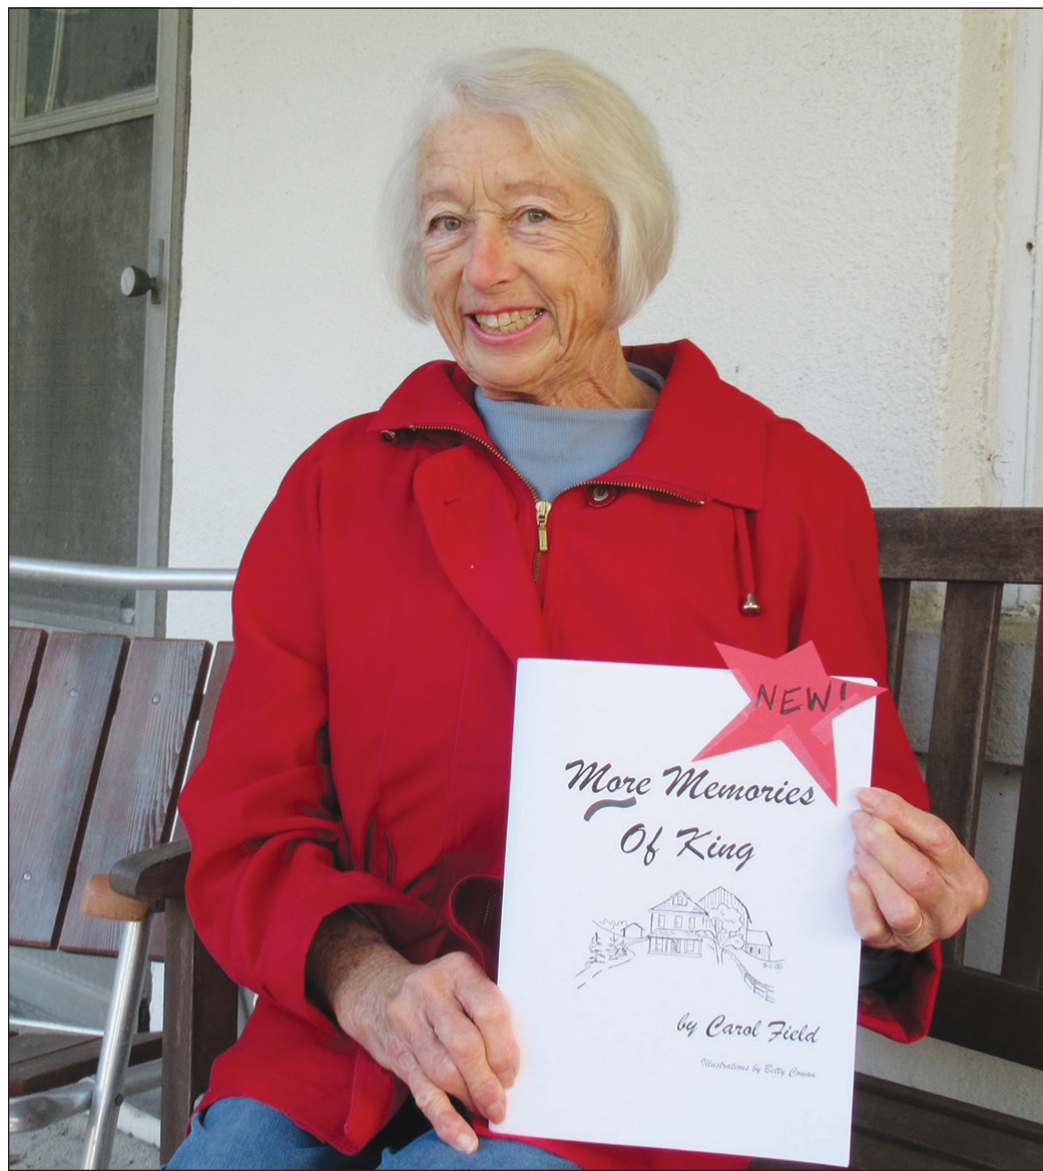 NEW!
More Memories
Of King
by Carol Field
Illustrations by Betty Cowan